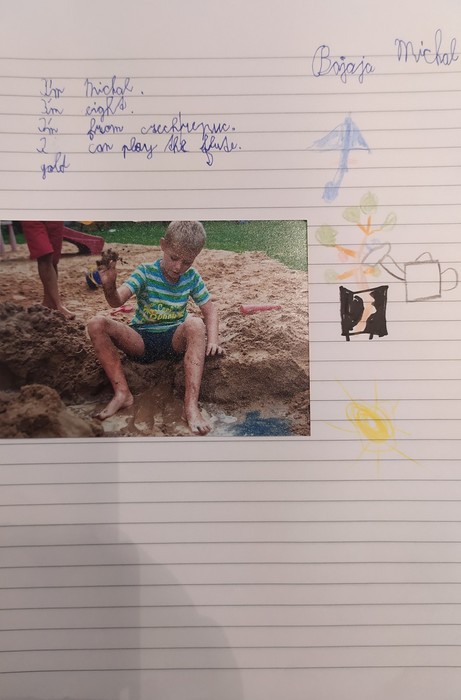 Bajaja Michal
I'm Michal.
I'm eight.
I'm from czechrepuc.
I can play the flute.